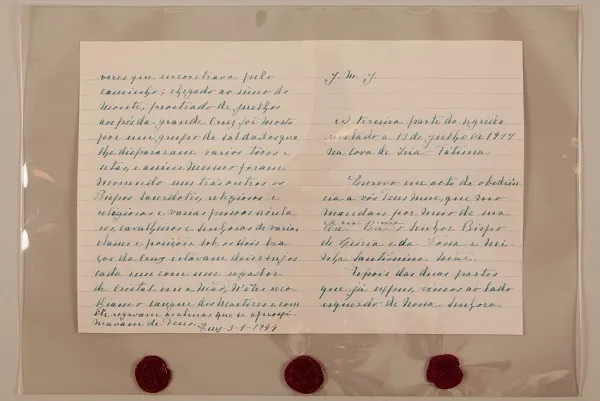 veres que encontrava pelo
caminho; chegado ao simo do
monte, prostrado de juelhos
aos pés da grande Cruz foi morto
por um grupo de soldados que
lhe dispararam varios tiros e
setas, e assim mesmo foram
morrendo uns trás outros os
Bispos Sacerdotes, religiosos e
religiosas e varias pessoas secula-
res, cavalheiros e senhoras de varias
classes e posições. Sob os dois bra-
ços da Cruz estavam dois Anjos
cada um com um regador
de cristal em a mão, n'êles reco-
lhiam o sangue dos Martires e com
êle regavam as almas que se aproxi-
mavam de Deus.
Tuy-3-1-1944
J. M. J.
A terceira parte do segredo
revelado a 13 de julho de 1917
na Cova de Iria - Fátima
Escrevo em acto de obediên-
cia a vós Deus meu, que mo
mandais por meio de sua
o Senhor Bispo
de Leiria e da Vossa e mi-
nha Santissima Mãe.
Depois das duas partes
que já expus, vimos ao lado
esquerdo de Nossa Senhora